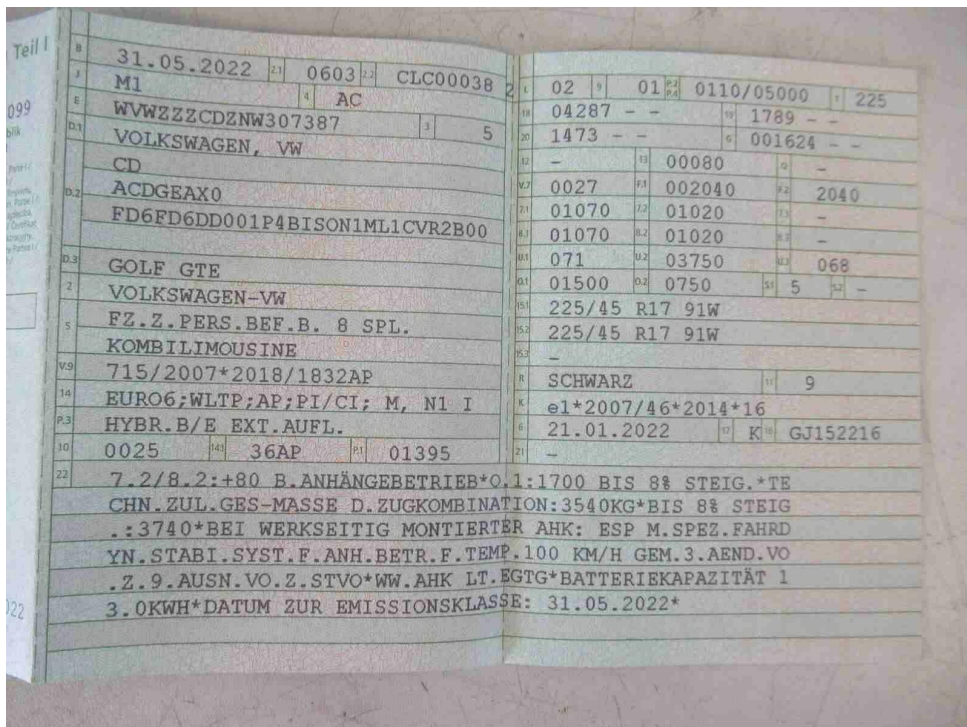 Teil I
B 31.05.2022 2.1 0603 2.2 CLC00038 2
J M1 4 AC
E WVWZZZCDZNW307387 3 5
D.1 VOLKSWAGEN, VW
CD
D.2 ACDGEAX0
FD6FD6DD001P4BISON1ML1CVR2B00
D.3 GOLF GTE
2 VOLKSWAGEN-VW
5 FZ.Z.PERS.BEF.B. 8 SPL.
KOMBILIMOUSINE
V.9 715/2007*2018/1832AP
14 EURO6;WLTP;AP;PI/CI; M, N1 I
P.3 HYBR.B/E EXT.AUFL.
10 0025 14.1 36AP P.1 01395
L 02 9 01 P.2 P.4 0110/05000 T 225
18 04287 - - 19 1789 - -
20 1473 - - G 001624 - -
12 - 13 00080 Q -
V.7 0027 F.1 002040 F.2 2040
7.1 01070 7.2 01020 7.3 -
8.1 01070 8.2 01020 8.3 -
U.1 071 U.2 03750 U.3 068
O.1 01500 O.2 0750 S.1 5 S.2 -
15.1 225/45 R17 91W
15.2 225/45 R17 91W
15.3 -
R SCHWARZ 11 9
K e1*2007/46*2014*16
6 21.01.2022 17 K 16 GJ152216
21 -
22 7.2/8.2:+80 B.ANHÄNGEBETRIEB*O.1:1700 BIS 8% STEIG.*TE
CHN.ZUL.GES-MASSE D.ZUGKOMBINATION:3540KG*BIS 8% STEIG
.:3740*BEI WERKSEITIG MONTIERTER AHK: ESP M.SPEZ.FAHRD
YN.STABI.SYST.F.ANH.BETR.F.TEMP.100 KM/H GEM.3.AEND.VO
.Z.9.AUSN.VO.Z.STVO*WW.AHK LT.EGTG*BATTERIEKAPAZITÄT 1
3.0KWH*DATUM ZUR EMISSIONSKLASSE: 31.05.2022*
099
blik
022